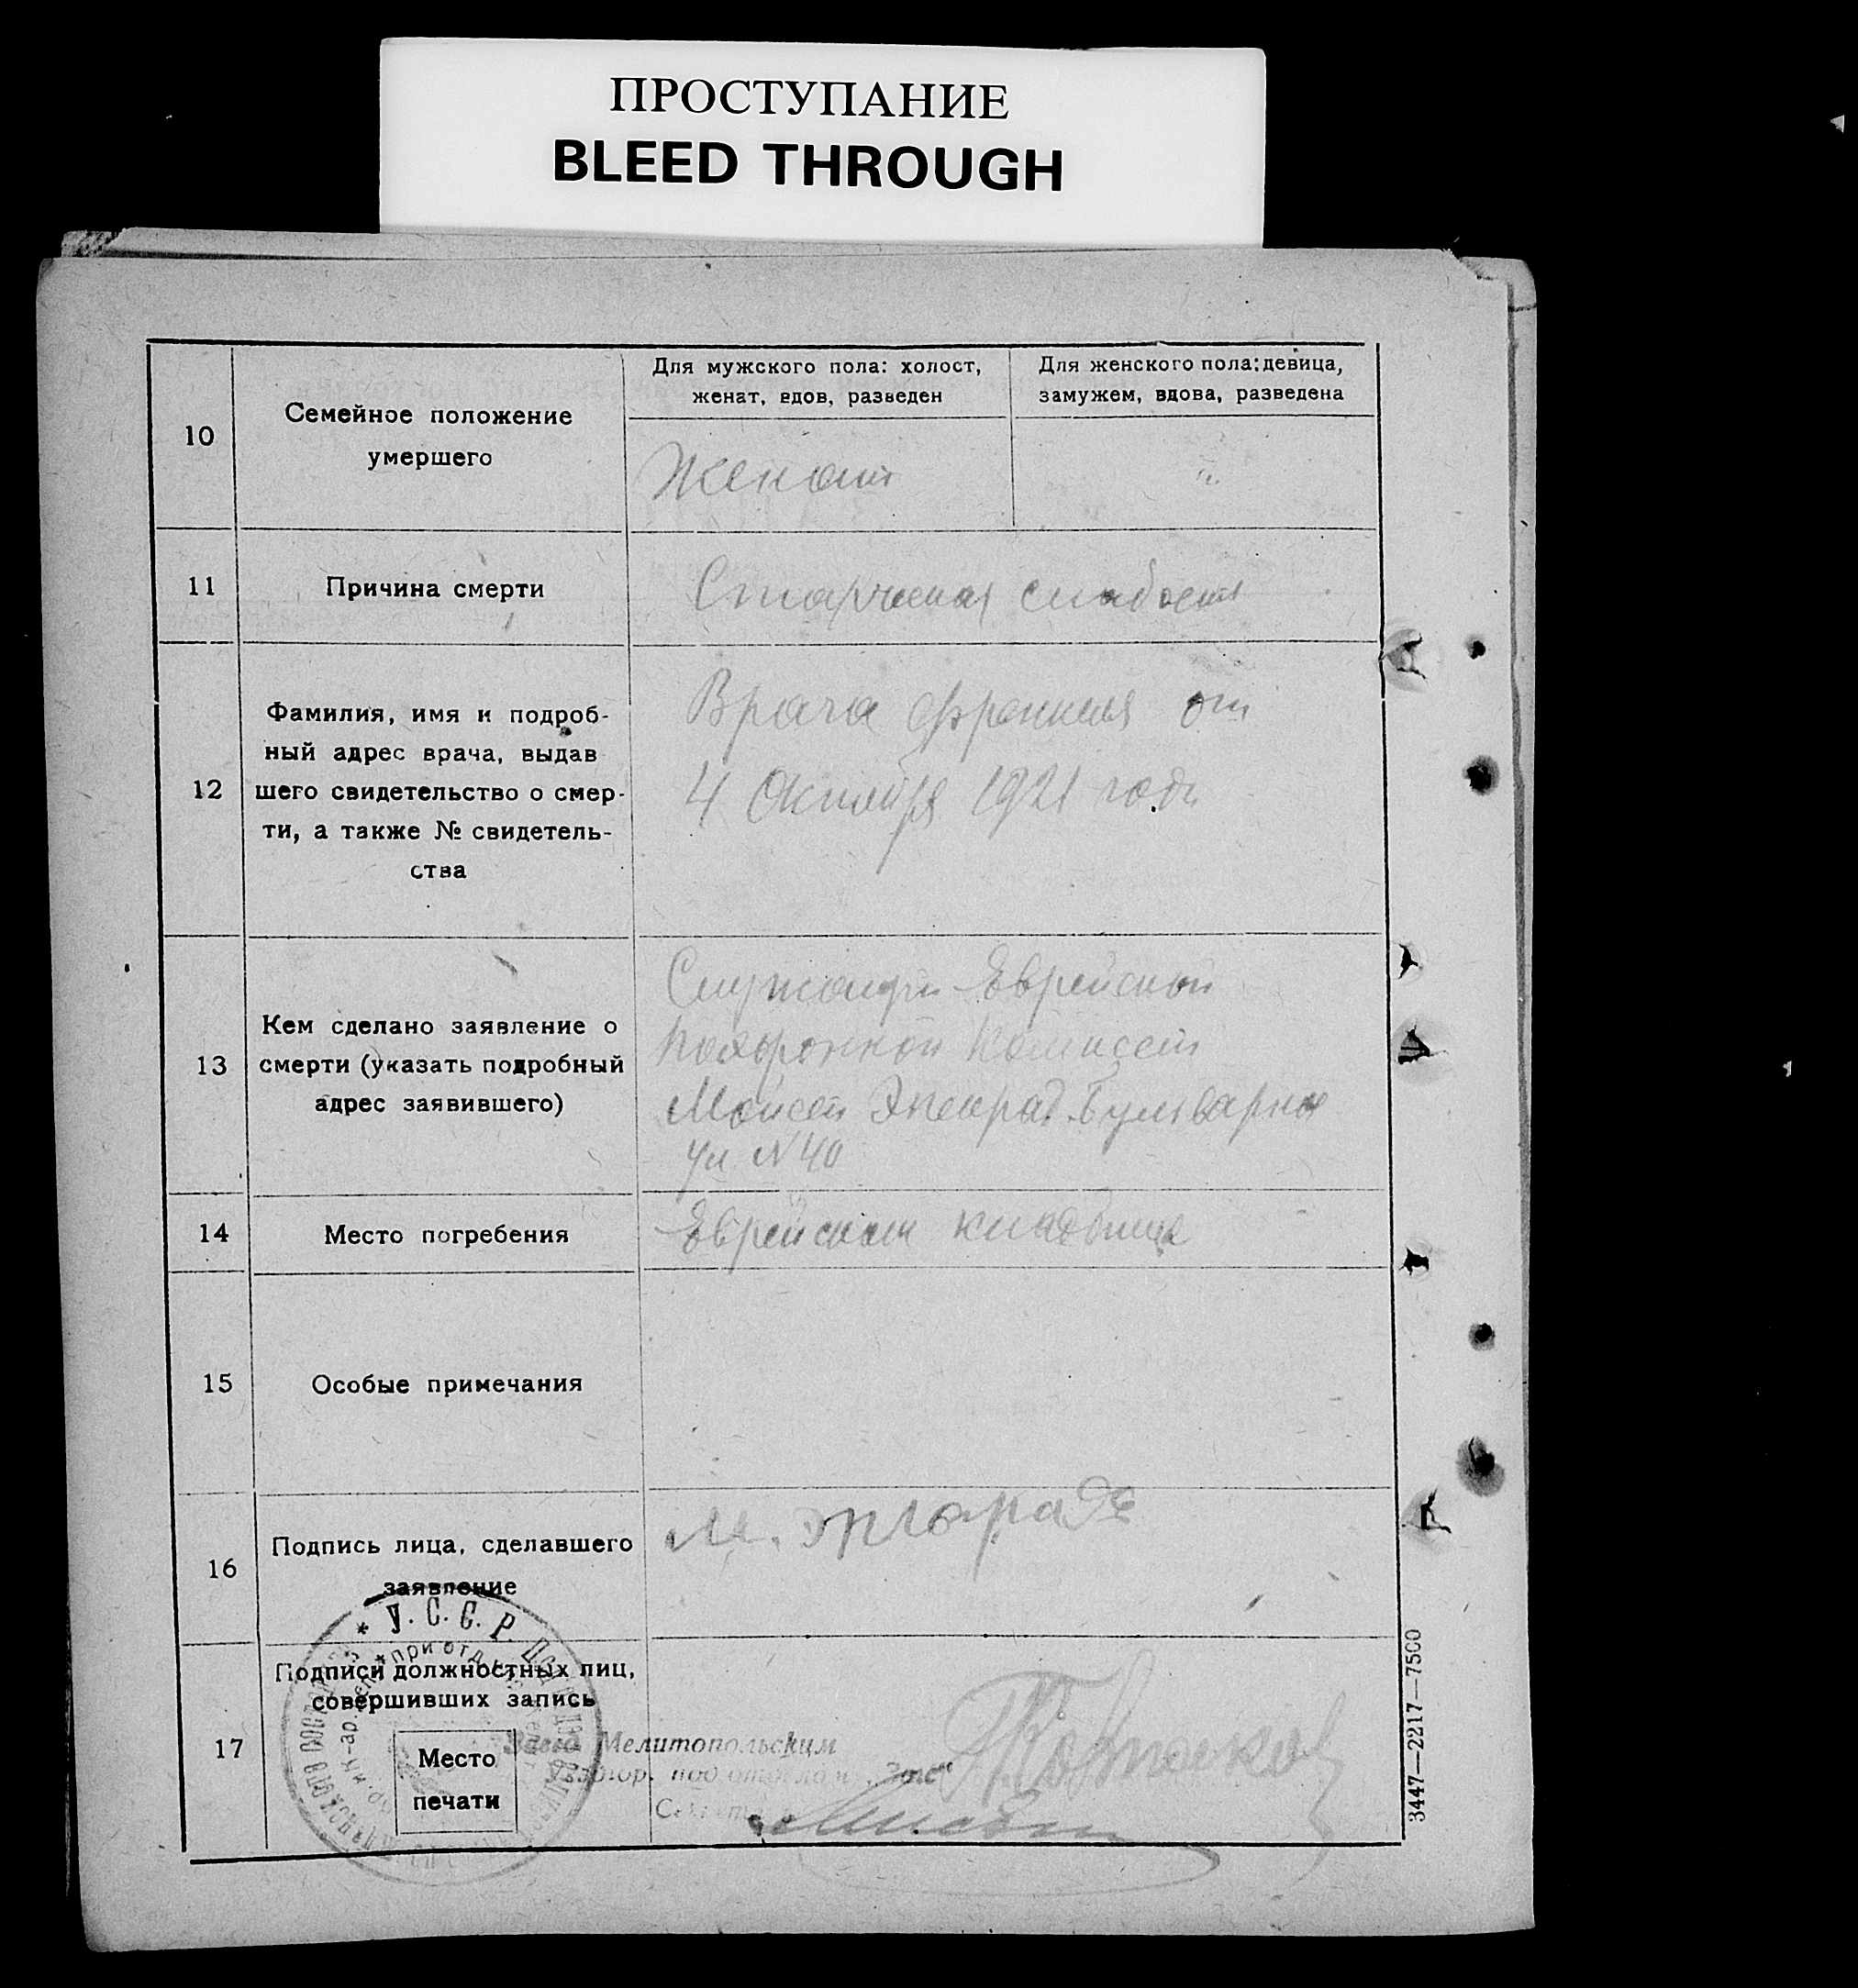 ПРОСТУПАНИЕ
BLEED THROUGH
10
Семейное положение
умершего
Для мужского пола: холост,
женат, вдов, разведен
Для женского пола: девица,
замужем, вдова, разведена
Женат
"
11
Причина смерти
Старческая слабость
12
Фамилия, имя и подроб-
ный адрес врача, выдав
шего свидетельство о смер-
ти, а также № свидетель-
ства
Врача Френкеля от
4 Октября 1921 года
13
Кем сделано заявление о
смерти (указать подробный
адрес заявившего)
Служащий Еврейской
Похоронной Комиссии
Моисей Бульварная
ул N 40
14
Место погребения
Еврейском кладбище
15
Особые примечания
16
Подпись лица, сделавшего
заявление
М.
17
Подписи должностных лиц,
совершивших запись
Место
печати
У. С. С. Р.
при отд
Мелитопольским
под "Загс"
3447—2217—7500